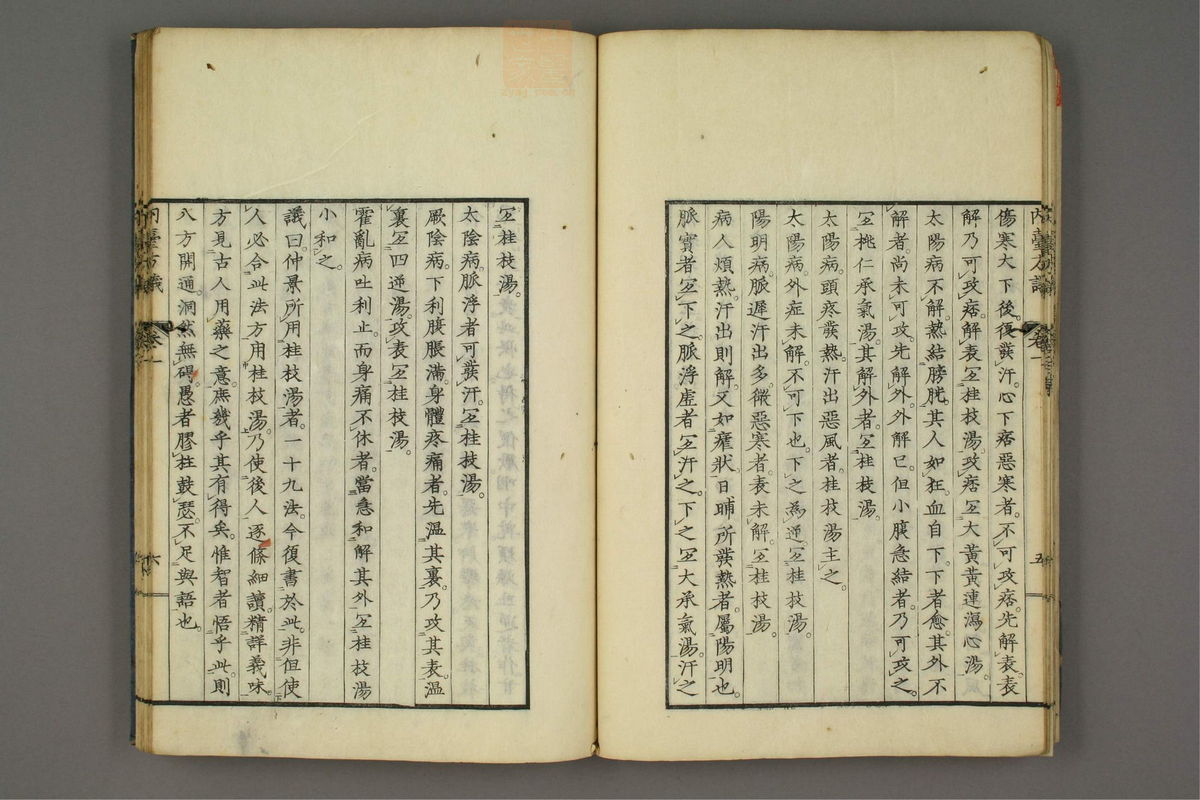 傷寒大下後。復發汗。心下痞惡寒者。不可攻痞。先解表。表
解乃可攻痞。解表宜桂枝湯。攻痞宜大黃黃連瀉心湯。
太陽病不解。熱結膀胱。其人如狂。血自下。下者愈。其外不
解者。尚未可攻。先解外。外解已。但小腹急結者。乃可攻之。
宜桃仁承氣湯。其解外者。宜桂枝湯。
太陽病。頭疼發熱。汗出惡風者。桂枝湯主之。
太陽病。外症未解。不可下也。下之為逆。宜桂枝湯。
陽明病。脈遲汗出多。微惡寒者。表未解。宜桂枝湯。
病人煩熱。汗出則解。又如瘧狀。日晡所發熱者。屬陽明也。
脈實者宜下之。脈浮虛者。宜汗之。下之宜大承氣湯。汗之
內臺方議
卷一
五
宜桂枝湯。
太陰病。脈浮者可發汗。宜桂枝湯。
厥陰病。下利腹脹滿。身體疼痛者。先溫其裏。乃攻其表。溫
裏宜四逆湯。攻表宜桂枝湯。
霍亂病吐利止。而身痛不休者。當急和解其外。宜桂枝湯
小和之。
議曰。仲景所用桂枝湯者。一十九法。今復書於此。非但使
人必合此法方用桂枝湯。乃使後人逐條細讀。精詳義味。
方見古人用藥之意。庶幾乎其有得矣。惟智者悟乎此。則
八方開通。洞然無碍。愚者膠柱鼓瑟。不足與語也。
內臺方議
卷一
六